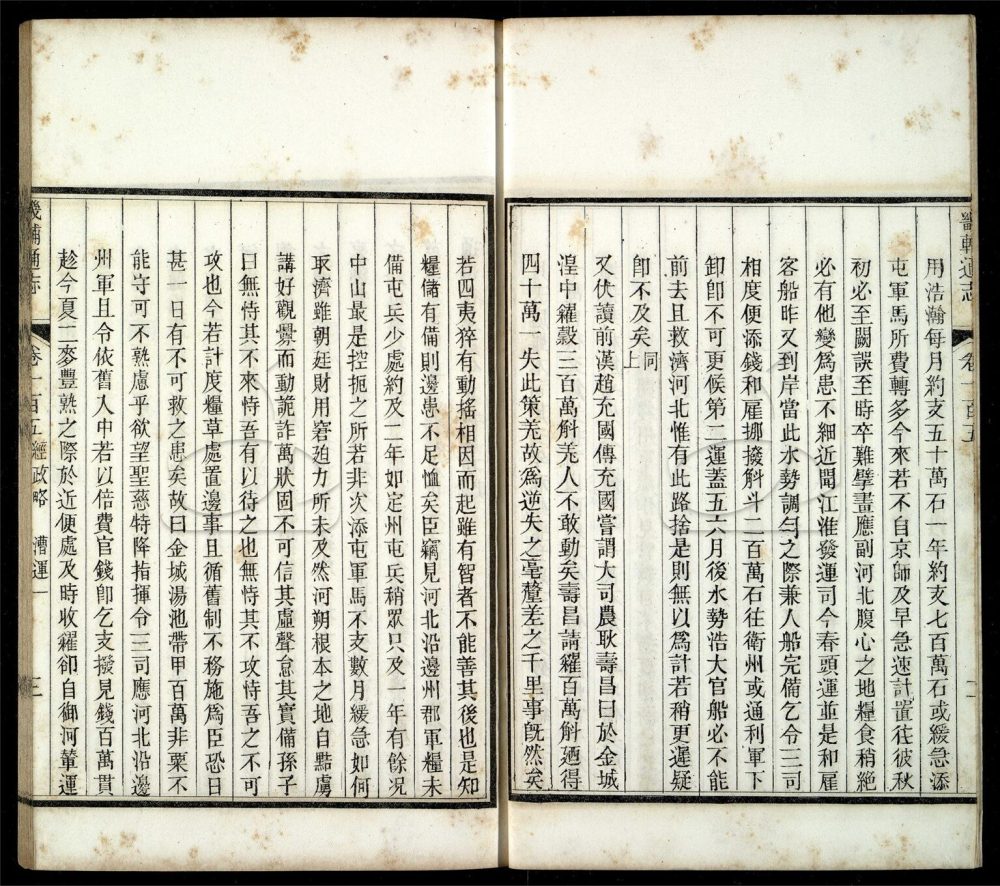 畿輔通志
卷一百五
二
用浩瀚每月約支五十萬石一年約支七百萬石或緩急添
屯軍馬所費轉多今來若不自京師及早急速計置往彼秋
初必至闕誤至時卒難擘畫應副河北腹心之地糧食稍絶
必有他變爲患不細近聞江淮發運司今春頭運並是和雇
客船昨又到岸當此水勢調勻之際兼人船完備乞令三司
相度便添錢和雇挪撥斛斗二百萬石往衞州或通利軍下
卸卽不可更候第二運蓋五六月後水勢浩大官船必不能
前去且救濟河北惟有此路捨是則無以爲計若稍更遲疑
卽不及矣同上
又伏讀前漢趙充國傳充國嘗謂大司農耿壽昌曰於金城
湟中糴穀三百萬斛羌人不敢動矣壽昌請糴百萬斛廼得
四十萬一失此策羌故爲逆失之毫釐差之千里事旣然矣
若四夷猝有動搖相因而起雖有智者不能善其後也是知
糧儲有備則邊患不足恤矣臣竊見河北沿邊州郡軍糧未
備屯兵少處約及二年如定州屯兵稍眾只及一年有餘况
中山最是控扼之所若非次添屯軍馬不支數月緩急如何
取濟雖朝廷財用窘迫力所未及然河朔根本之地自黠虜
講好觀釁而動詭詐萬狀固不可信其虛聲怠其實備孫子
曰無恃其不來恃吾有以待之也無恃其不攻恃吾之不可
攻也今若計度糧草處置邊事且循舊制不務施爲臣恐日
甚一日有不可救之患矣故曰金城湯池帶甲百萬非粟不
能守可不熟慮乎欲望聖慈特降指揮令三司應河北沿邊
州軍且令依舊入中若以倍費官錢卽乞支撥見錢百萬貫
趁今夏二麥豐熟之際於近便處及時收糴卻自御河輦運
畿輔通志
卷一百五 經政略 漕運一
三